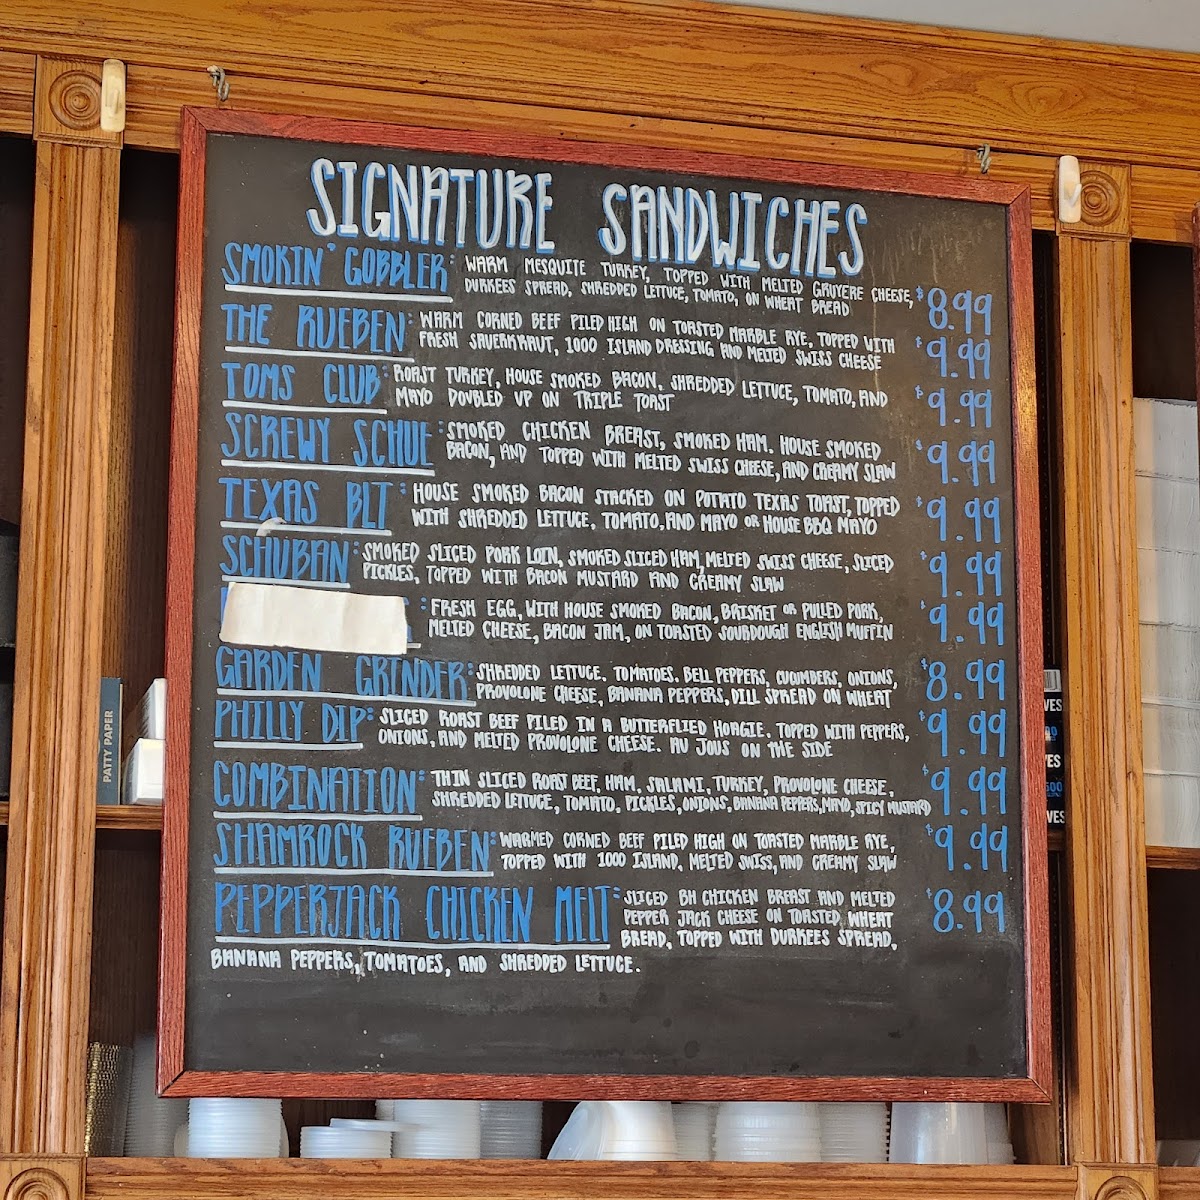 SIGNATURE SANDWICHES
SMOKIN' GOBBLER: WARM MESQUITE TURKEY, TOPPED WITH MELTED GRUYERE CHEESE,
DURKEES SPREAD, SHREDDED LETTUCE, TOMATO, ON WHEAT BREAD $8.99
THE RUEBEN: WARM CORNED BEEF PILED HIGH ON TOASTED MARBLE RYE, TOPPED WITH
FRESH SAUERKRAUT, 1000 ISLAND DRESSING AND MELTED SWISS CHEESE $9.99
TOMS CLUB: ROAST TURKEY, HOUSE SMOKED BACON, SHREDDED LETTUCE, TOMATO, AND
MAYO DOUBLED UP ON TRIPLE TOAST $9.99
SCREWY SCHUE: SMOKED CHICKEN BREAST, SMOKED HAM, HOUSE SMOKED
BACON, AND TOPPED WITH MELTED SWISS CHEESE, AND CREAMY SLAW $9.99
TEXAS BLT: HOUSE SMOKED BACON STACKED ON POTATO TEXAS TOAST, TOPPED
WITH SHREDDED LETTUCE, TOMATO, AND MAYO OR HOUSE BBQ MAYO $9.99
SCHUBAN: SMOKED SLICED PORK LOIN, SMOKED SLICED HAM, MELTED SWISS CHEESE, SLICED
PICKLES, TOPPED WITH BACON MUSTARD AND CREAMY SLAW $9.99
: FRESH EGG, WITH HOUSE SMOKED BACON, BRISKET OR PULLED PORK,
MELTED CHEESE, BACON JAM, ON TOASTED SOURDOUGH ENGLISH MUFFIN $9.99
GARDEN GRINDER: SHREDDED LETTUCE, TOMATOES, BELL PEPPERS, CUCUMBERS, ONIONS,
PROVOLONE CHEESE, BANANA PEPPERS, DILL SPREAD ON WHEAT $8.99
PHILLY DIP: SLICED ROAST BEEF PILED IN A BUTTERFLIED HOAGIE. TOPPED WITH PEPPERS,
ONIONS, AND MELTED PROVOLONE CHEESE. AU JOUS ON THE SIDE $9.99
COMBINATION: THIN SLICED ROAST BEEF, HAM, SALAMI, TURKEY, PROVOLONE CHEESE,
SHREDDED LETTUCE, TOMATO, PICKLES, ONIONS, BANANA PEPPERS, MAYO, SPICY MUSTARD $9.99
SHAMROCK RUEBEN: WARMED CORNED BEEF PILED HIGH ON TOASTED MARBLE RYE,
TOPPED WITH 1000 ISLAND, MELTED SWISS, AND CREAMY SLAW $9.99
PEPPERJACK CHICKEN MELT: SLICED BH CHICKEN BREAST AND MELTED
PEPPER JACK CHEESE ON TOASTED WHEAT $8.99
BREAD, TOPPED WITH DURKEES SPREAD,
BANANA PEPPERS, TOMATOES, AND SHREDDED LETTUCE.
PATTY PAPER